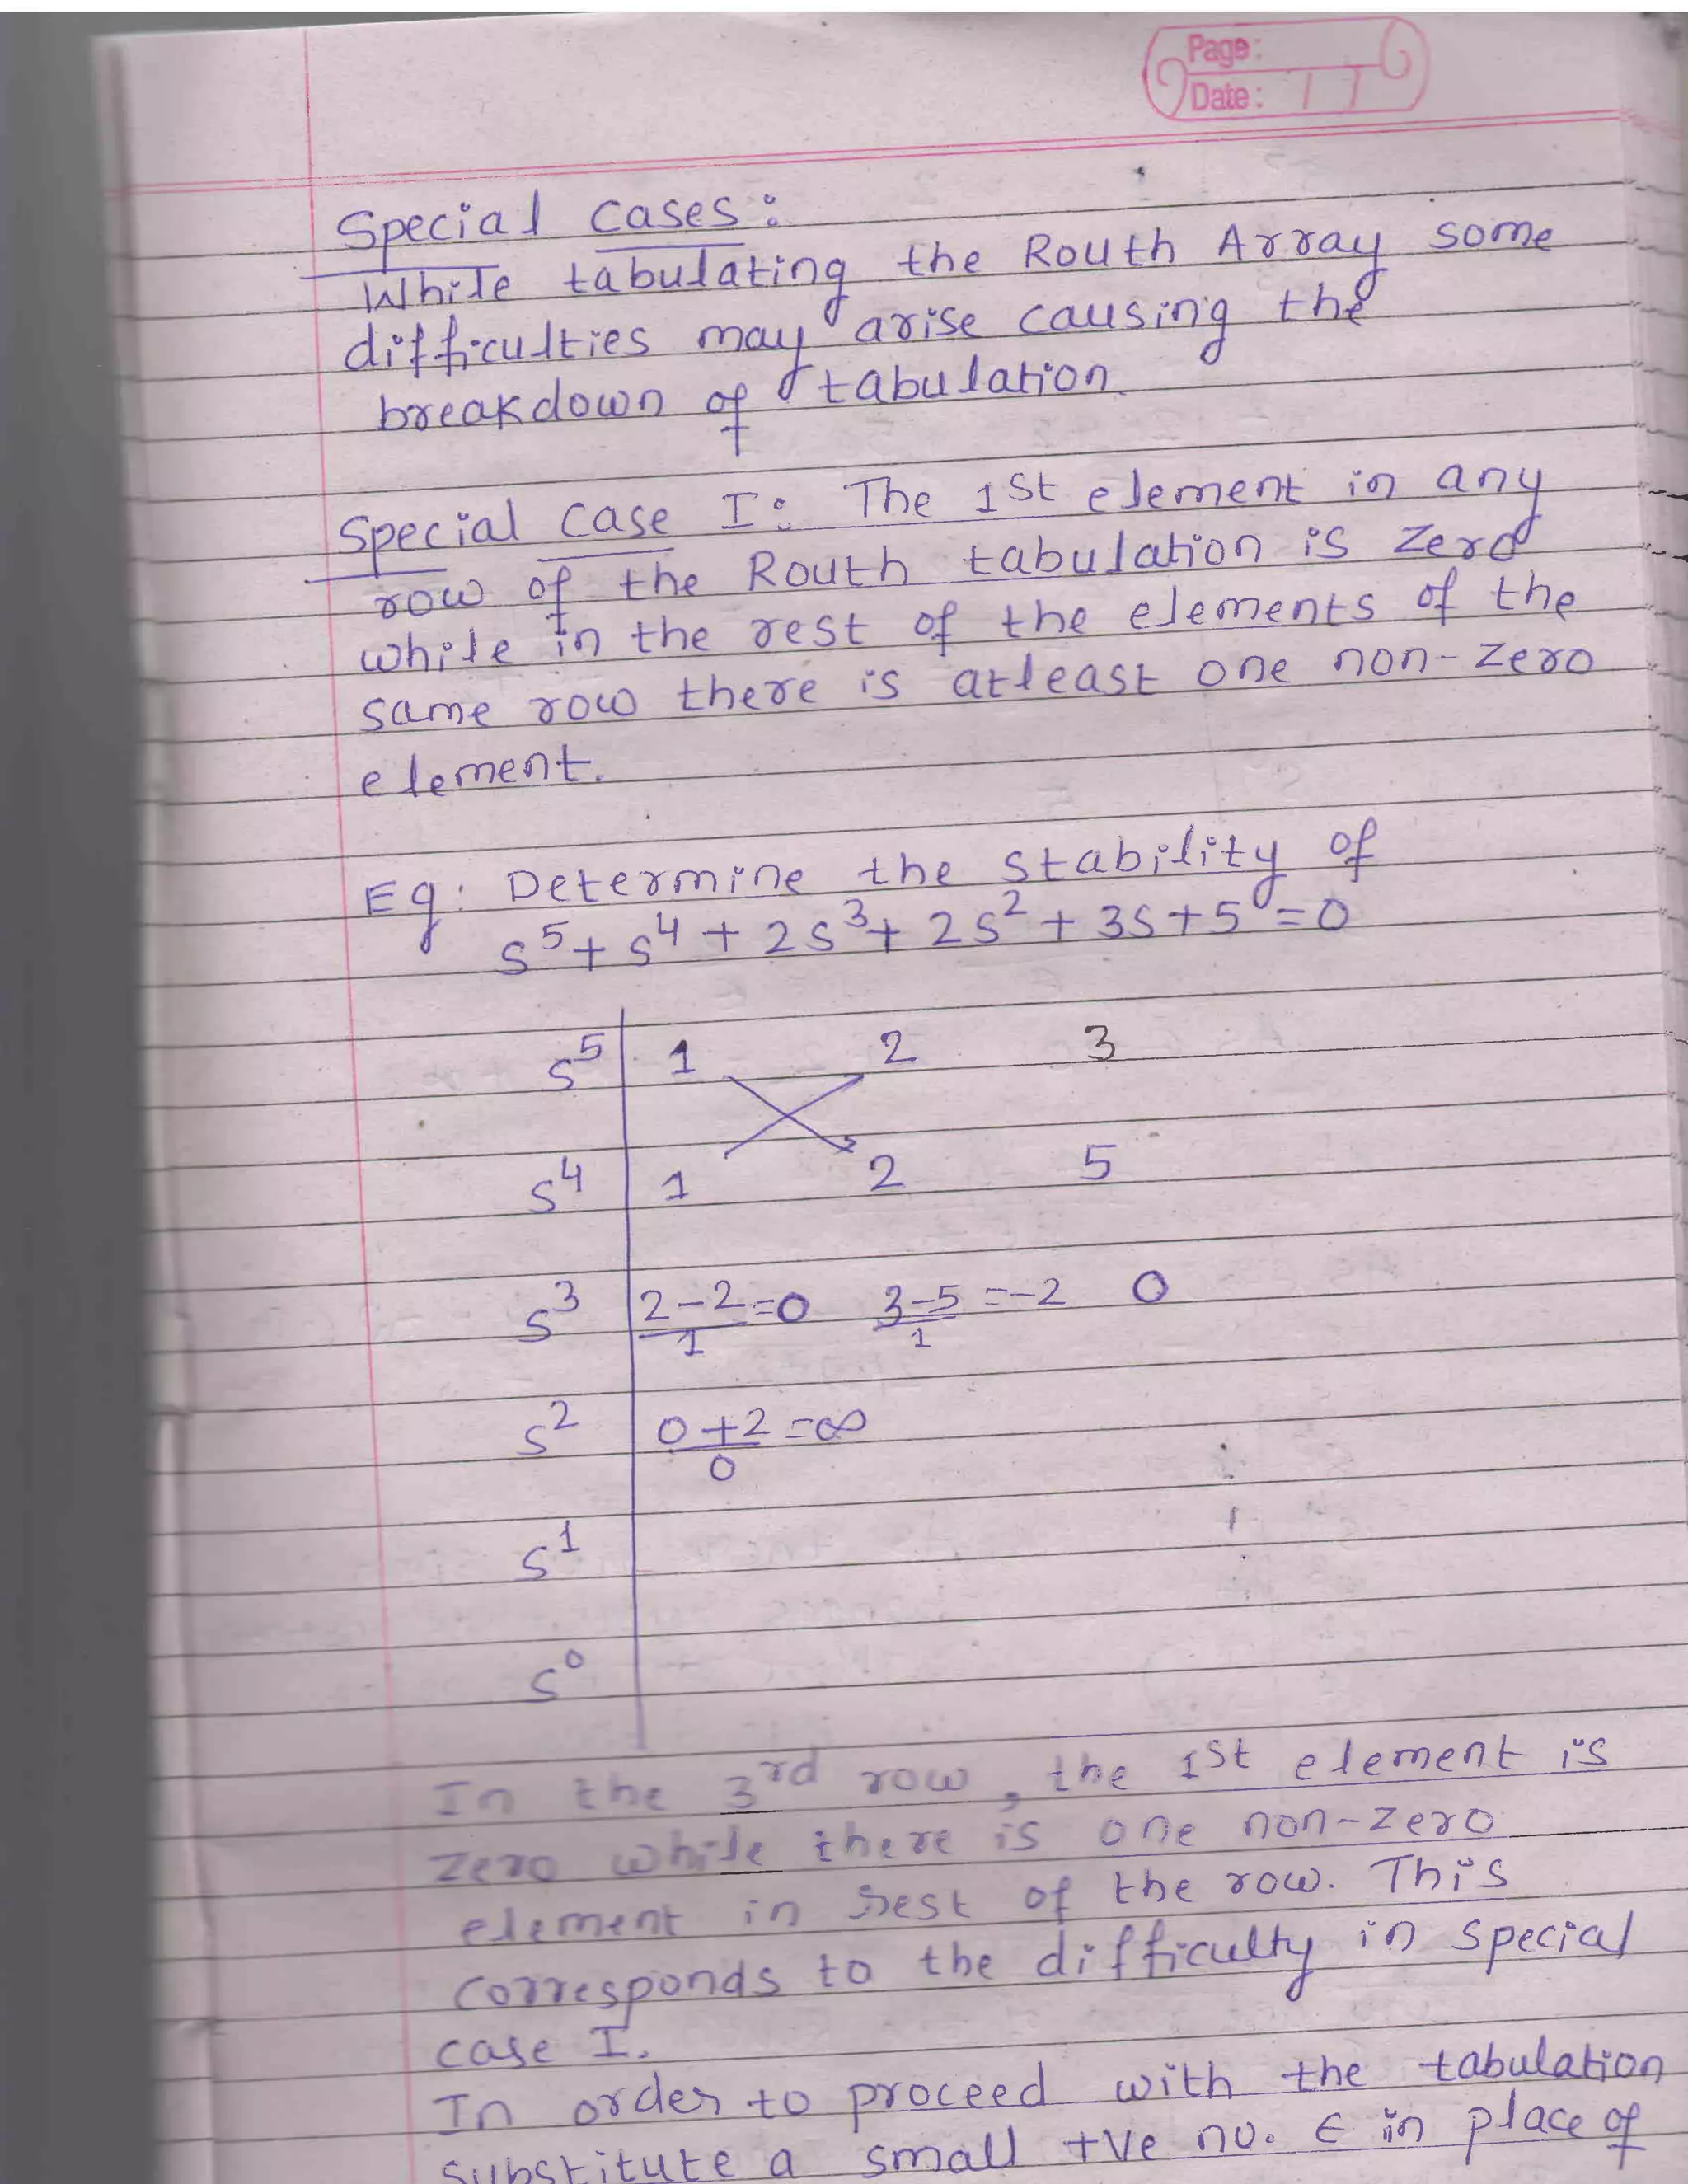 Page:
Date: / /
Special cases:
While tabulating the Routh Array some
difficulties may arise causing the
breakdown of tabulation.
Special case I: The 1st element in any
row of the Routh tabulation is zero
while in the rest of the elements of the
same row there is atleast one non-zero
element.
Eg: Determine the stability of
s⁵ + s⁴ + 2s³ + 2s² + 3s + 5 = 0
s⁵ | 1 2 3
s⁴ | 1 2 5
s³ | (2-2)/1 = 0 (3-5)/1 = -2 0
s² | (0+2)/0 = ∞
s¹ |
s⁰ |
In the 3rd row, the 1st element is
zero while there is one non-zero
element in rest of the row. This
corresponds to the difficulty in special
case I.
In order to proceed with the tabulation
substitute a small +ve no. ϵ in place of